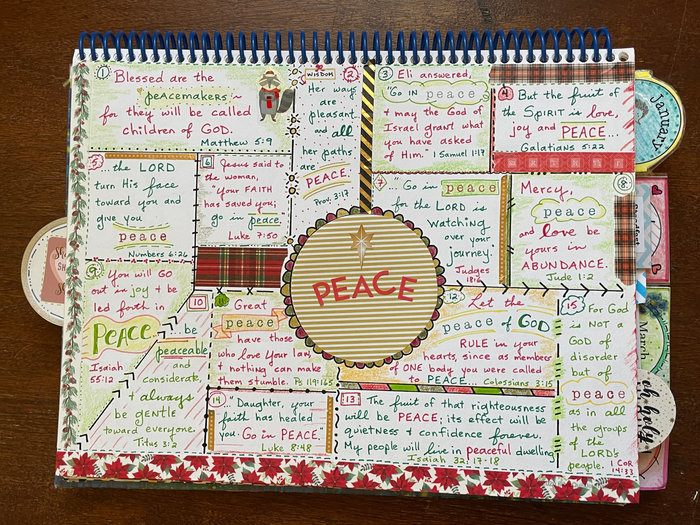 1
Blessed are the
peacemakers ~
for they will be called
children of GOD.
Matthew 5:9
WISDOM
2
Her ways
are
pleasant
and all
her paths
are
PEACE.
Prov. 3:17
3
Eli answered,
"Go IN peace
+ may the God of
Israel grant what
you have asked
of Him." 1 Samuel 1:17
4
But the fruit of
the SPIRIT is love,
joy and PEACE...
Galatians 5:22
5
... the LORD
turn His face
toward you and
give you
peace
Numbers 6:26
6
Jesus said to
the woman,
"your FAITH
has saved you;
go in peace.
Luke 7:50
7
... "Go in peace
for the LORD is
WATCHING
over your
journey."
Judges
18:6
8
Mercy,
peace
and love be
yours in
ABUNDANCE.
Jude 1:2
9
You will GO
out in joy + be
led forth in
PEACE...
Isaiah
55:12
PEACE
10
... be
peaceable
and
considerate,
+ always
be gentle
toward everyone.
Titus 3:2
11
Great
peace
have those
who love your law,
+ nothing can make
them stumble. Ps 119:165
12
Let the
peace of GOD
RULE in your
hearts, since as members
of ONE body you were called
to PEACE... Colossians 3:15
13
The fruit of that righteousness
will be PEACE; its effect will be
quietness + confidence forever.
My people will live in peaceful dwelling
Isaiah 32:17-18
14
"Daughter, your
faith has healed
you. Go in PEACE."
Luke 8:48
15
For God
is NOT a
GOD of
disorder
but of
peace
as in all
the groups
of the
LORD's
people. 1 COR
14:33
January
March
oh holy